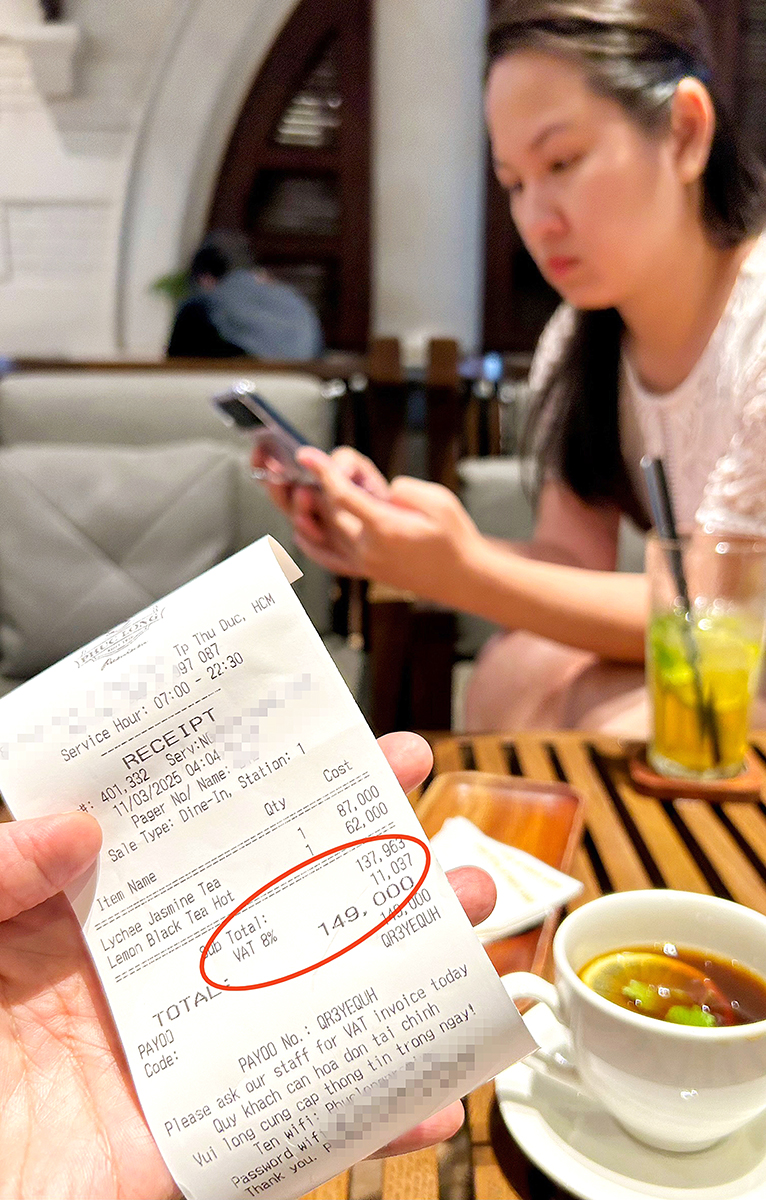 PHUC LONG
Premium
Tp Thu Duc, HCM
997 087
Service Hour: 07:00 - 22:30
RECEIPT
#: 401,332 Serv:N
11/03/2025 04:04
Pager No/ Name:
Sale Type: Dine-In, Station: 1
Item Name Qty Cost
Lychee Jasmine Tea 1 87,000
Lemon Black Tea Hot 1 62,000
Sub Total: 137,963
VAT 8% 11,037
TOTAL: 149,000
PAYOO 149,000
Code: QR3YEQUH
PAYOO No.: QR3YEQUH
Please ask our staff for VAT invoice today
Quy khach can hoa don tai chinh
Vui long cung cap thong tin trong ngay!
Ten wifi:
Password wifi
Thank you.